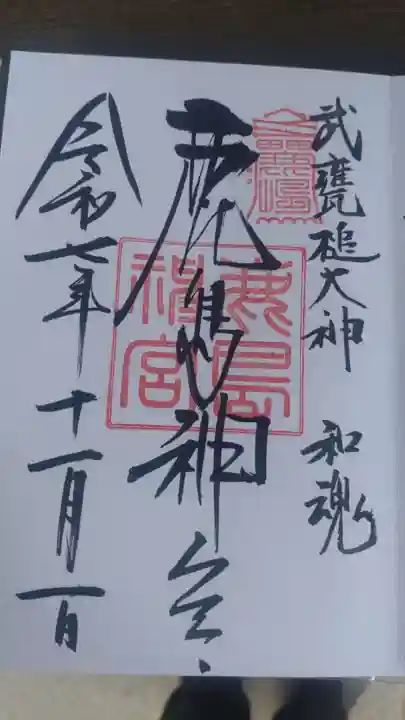 武甕槌大神　和魂
鹿島神宮
鹿島
神宮
令和七年十一月一日